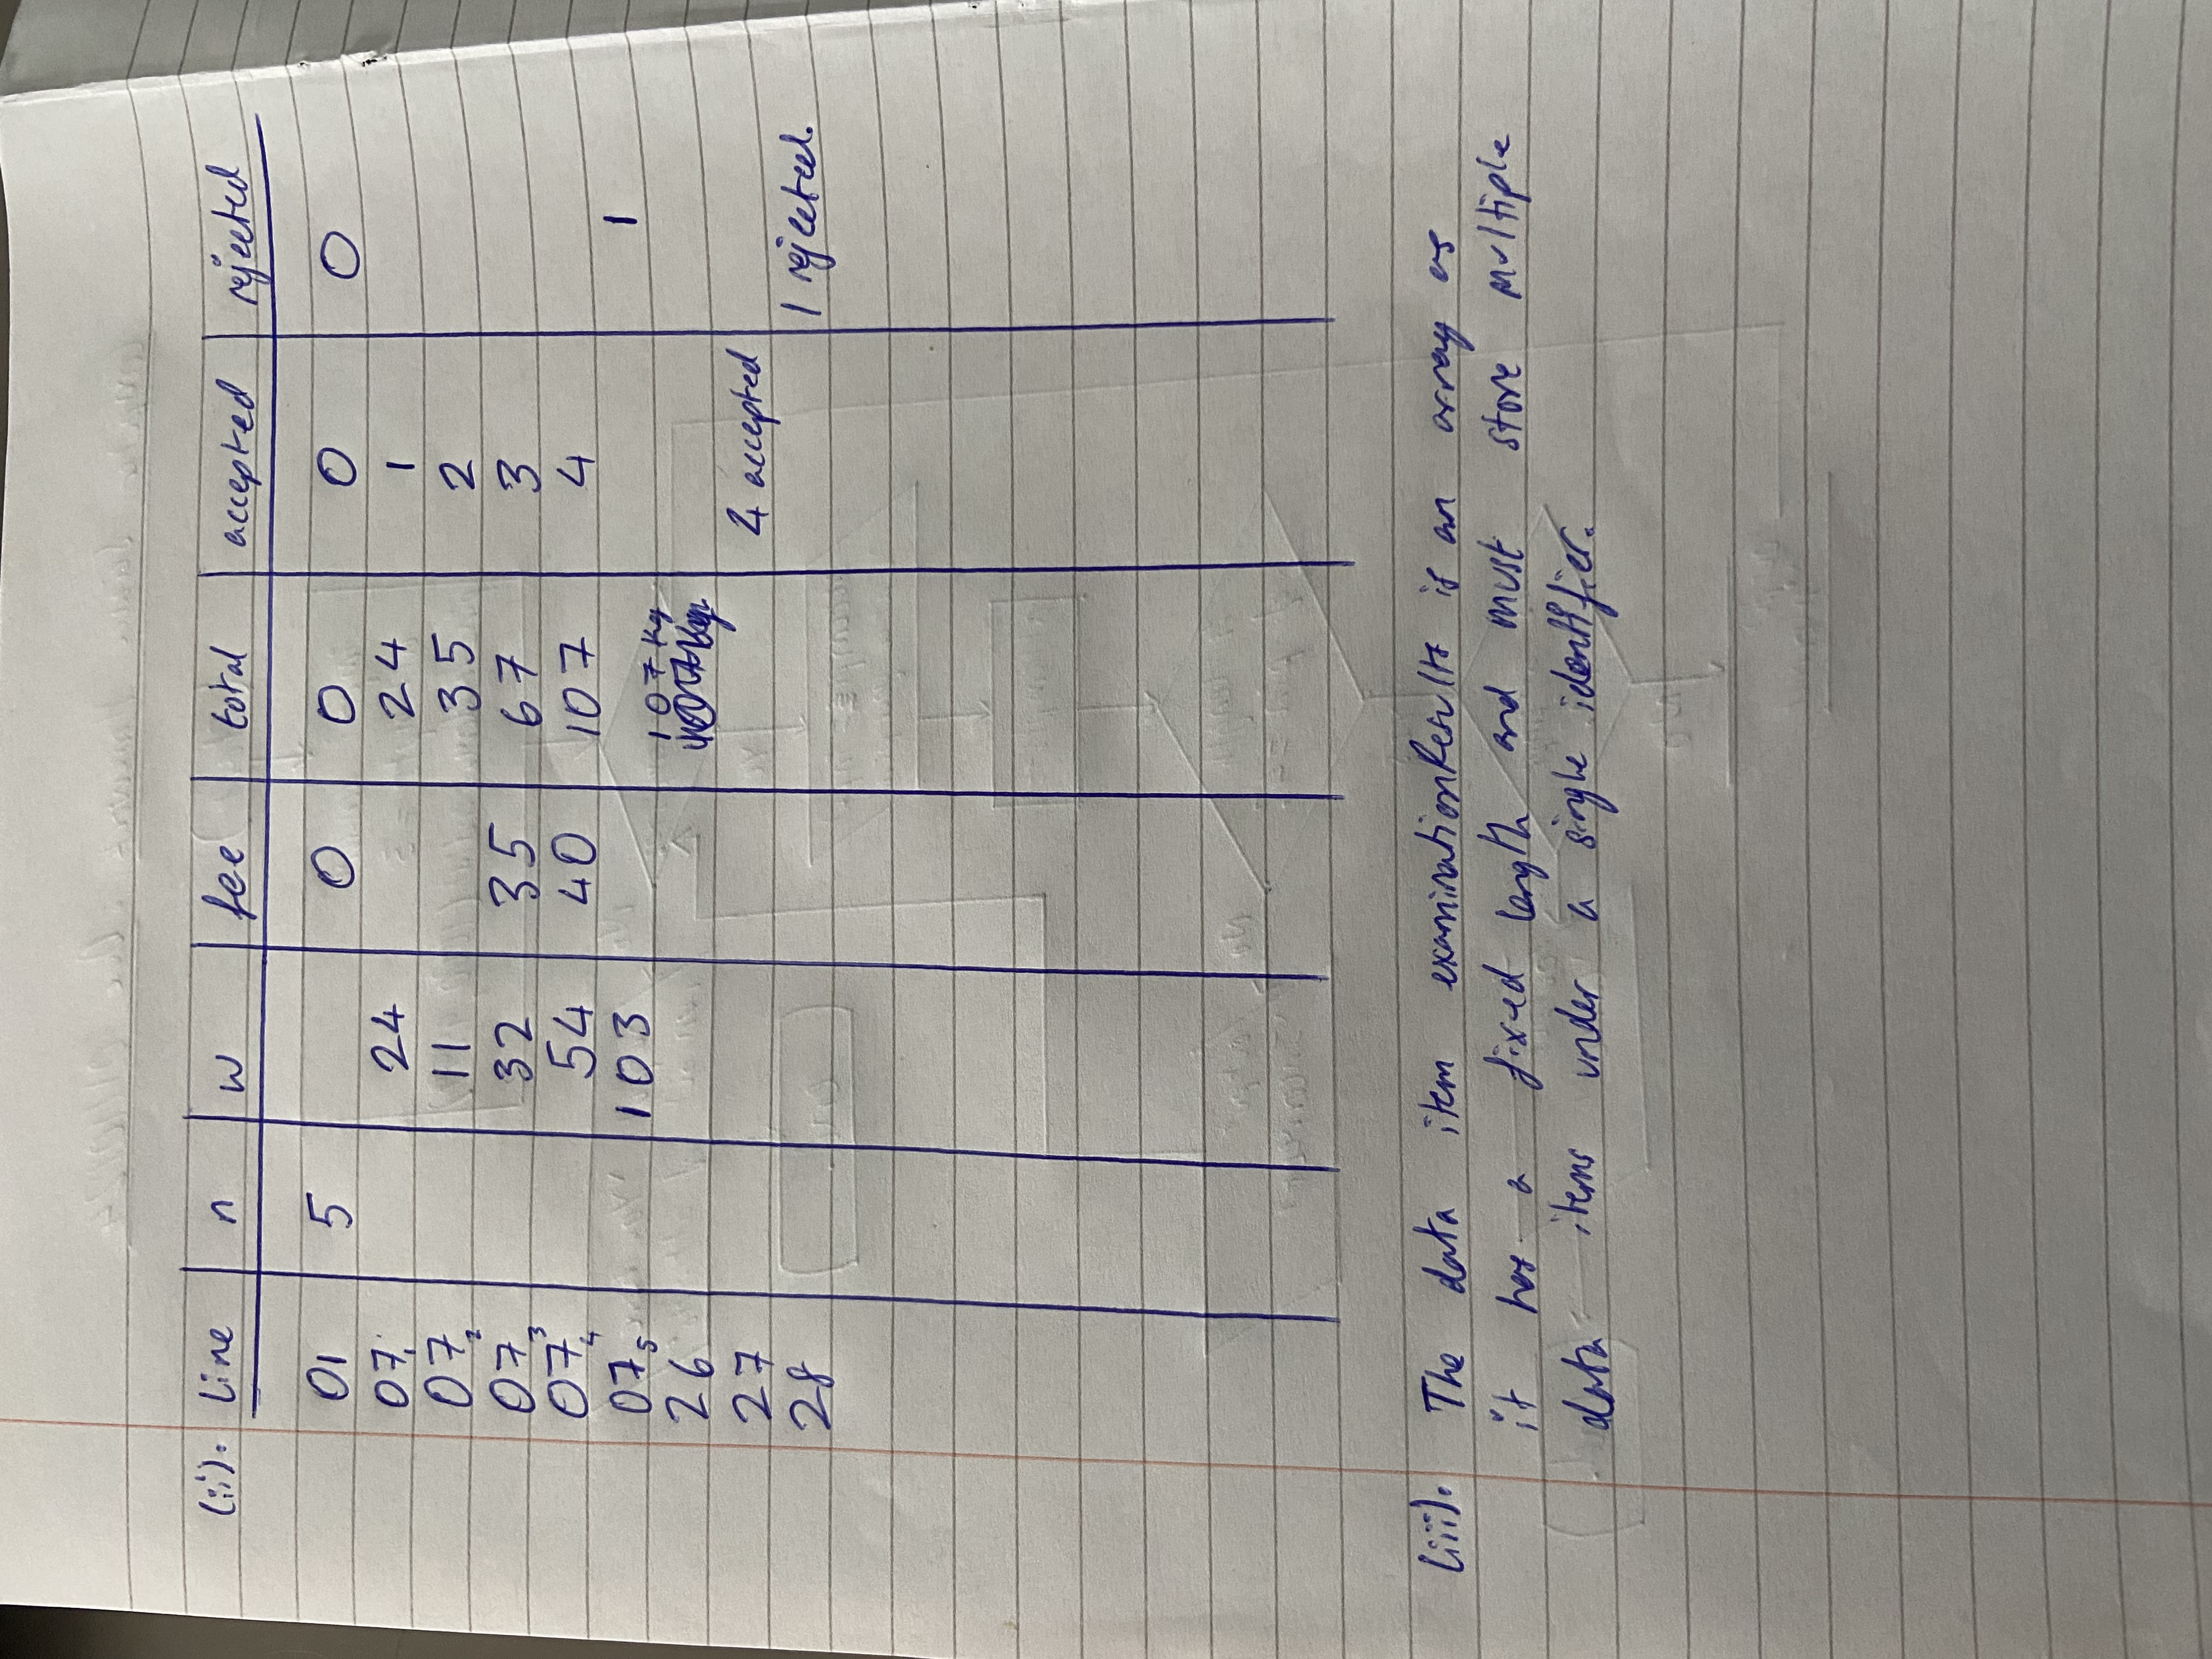 (ii). Line n w fee total accepted rejected
01 5 0 0 0 0
07 1 24 24 1
07 2 11 35 2
07 3 32 35 67 3
07 4 54 40 107 4
07 5 103 1
107 Kg
26
27 4 accepted
28 1 rejected.
(iii). The data item examinationResults is an array as
it has a fixed length and must store multiple
data items under a single identifier.